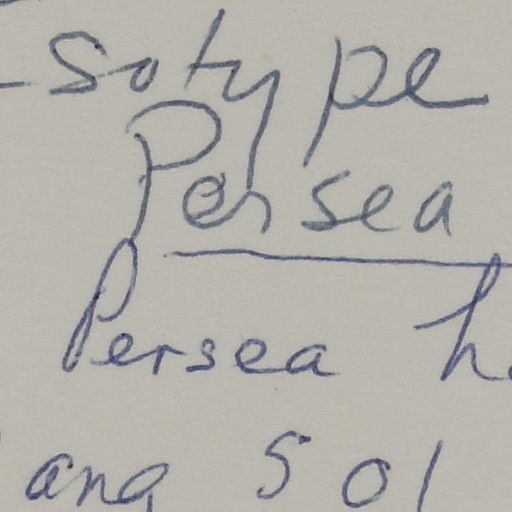 sotype
Persea
Persea h
ang 501